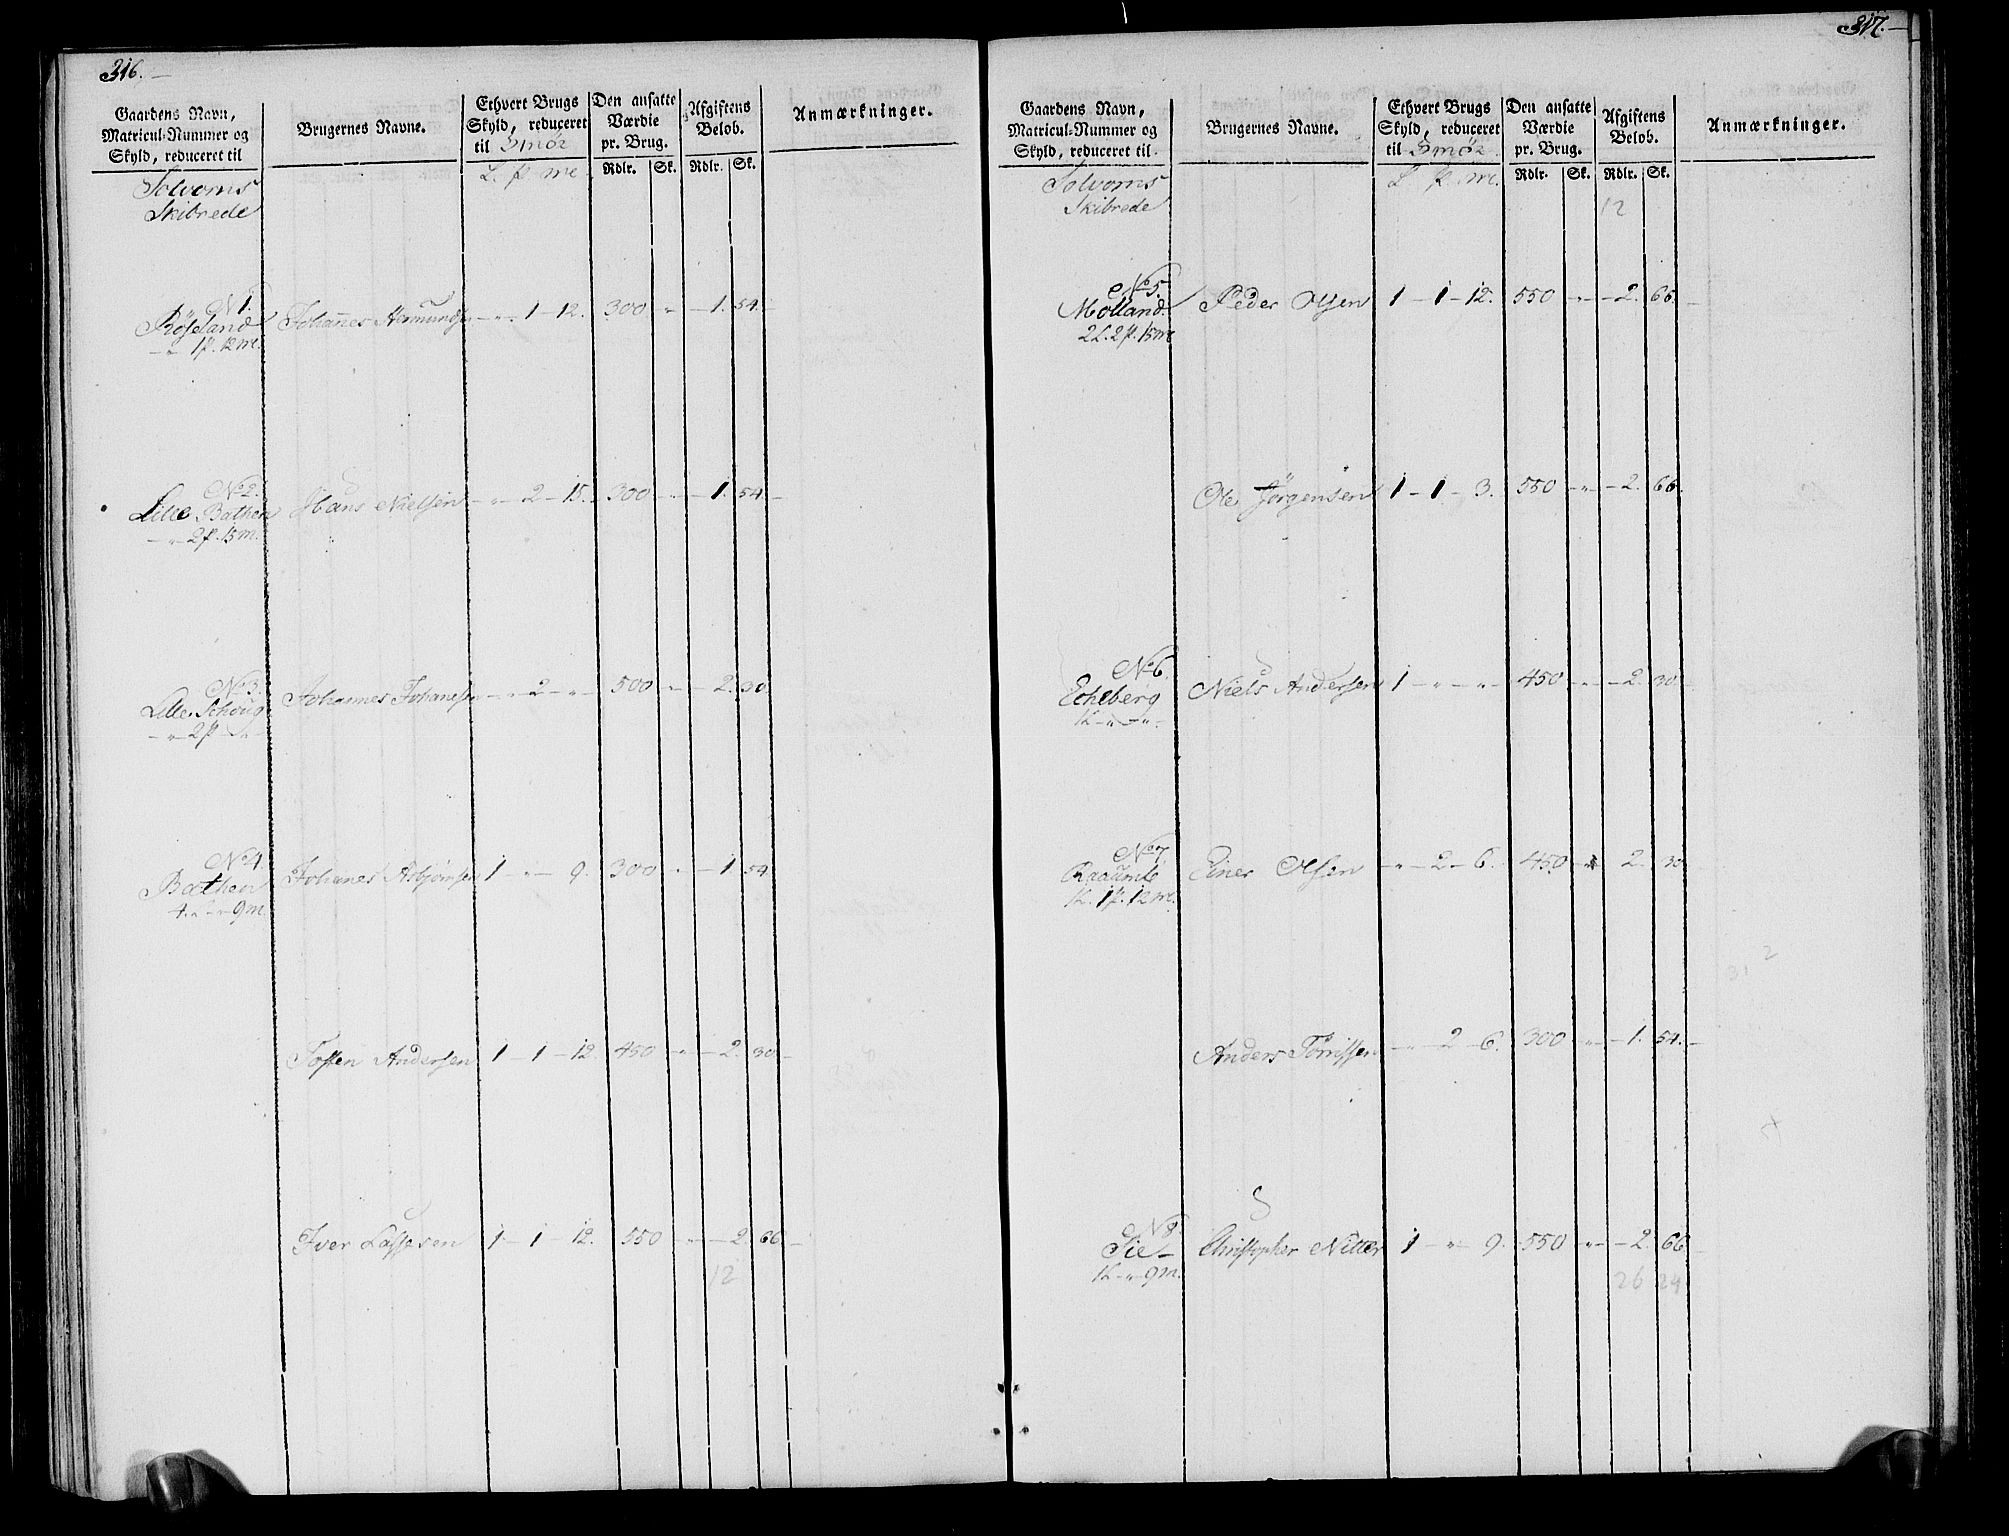 316.
Gaardens Navn,
Matricul-Nummer og
Skyld, reduceret til
Brugernes Navne.
Ethvert Brugs
Skyld, reduceret
til Smör
L. p me
Den ansatte
Værdie
pr. Brug.
Rdlr. Sk.
Afgiftens
Beløb.
Rdlr. Sk.
Anmærkninger.
Solvorns
Skibrede
N 1.
Röseland Johannes Asmundsen - " - 1 - 12. 300 " - 1. 54.
- " 1p. 12me.
No 2.
Lille Bathen Hans Nielsen - " - 2 - 15. 300 - " - 1. 54.
- " - 2p. 15m.
No 3.
Lille Schoug Johannes Johanesen - " - 2 - " - 500 - " - 2. 30.
- " - 2p - " -
No 4.
Bathen Johanes Asbjörnsen 1 - " - 9. 300 " - 1. 54
4. " - " 9m.
Tosten Andersen 1 - 1 - 12. 450 " - 2. 30.
Iver Lassesen 1 - 1 - 12. 550 - " - 2. 66.
12
317.
Gaardens Navn,
Matricul-Nummer og
Skyld, reduceret til
Brugernes Navne.
Ethvert Brugs
Skyld, reduceret
til Smör
L p me.
Den ansatte
Værdie
pr. Brug.
Rdlr. Sk.
Afgiftens
Beløb.
Rdlr. Sk.
Anmærkninger.
Solvorns
Skibrede
12
No 5.
Molland. Peder Olsen 1 - 1 - 12. 550 - " - 2. 66.
2L. 2p. 15me
Ole Jörgensen 1 - 1 - 3. 550 - " - 2. 66.
No 6.
Echeberg Niels Andersen 1 - " - " - 450 - " - 2. 30.
1L - " - " -
No 7
Einer Olsen - " - 2 - 6. 450 " 2. 30
1L. 1p. 12me.
Anders Törrissen - " - 2 - 6. 300 - " - 1. 54.
31 2
N 8.
Sie - Christopher Nitter 1 - " - 9. 550 - " - 2. 66.
1L - " - 9m.
26 24